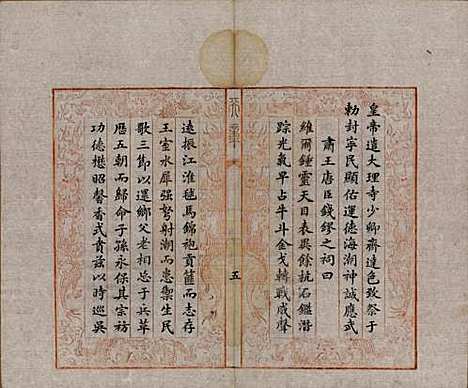 皇帝遣大理寺少卿齊達色致祭于
勅封寧民顯佑運德海潮神誠應武
肅王唐臣錢鏐之祠曰
維爾鍾靈天目表異餘杭石鑑潛
踪光氣早占牛斗金戈轉戰威聲
五
遠振江淮毬馬錦袍貢篚而志存
王室水犀强弩射潮而患禦生民
歌三節以還鄉父老相忘于兵革
歷五朝而歸命子孫永保其宗祊
功德懋昭馨香式賁兹以時巡吳